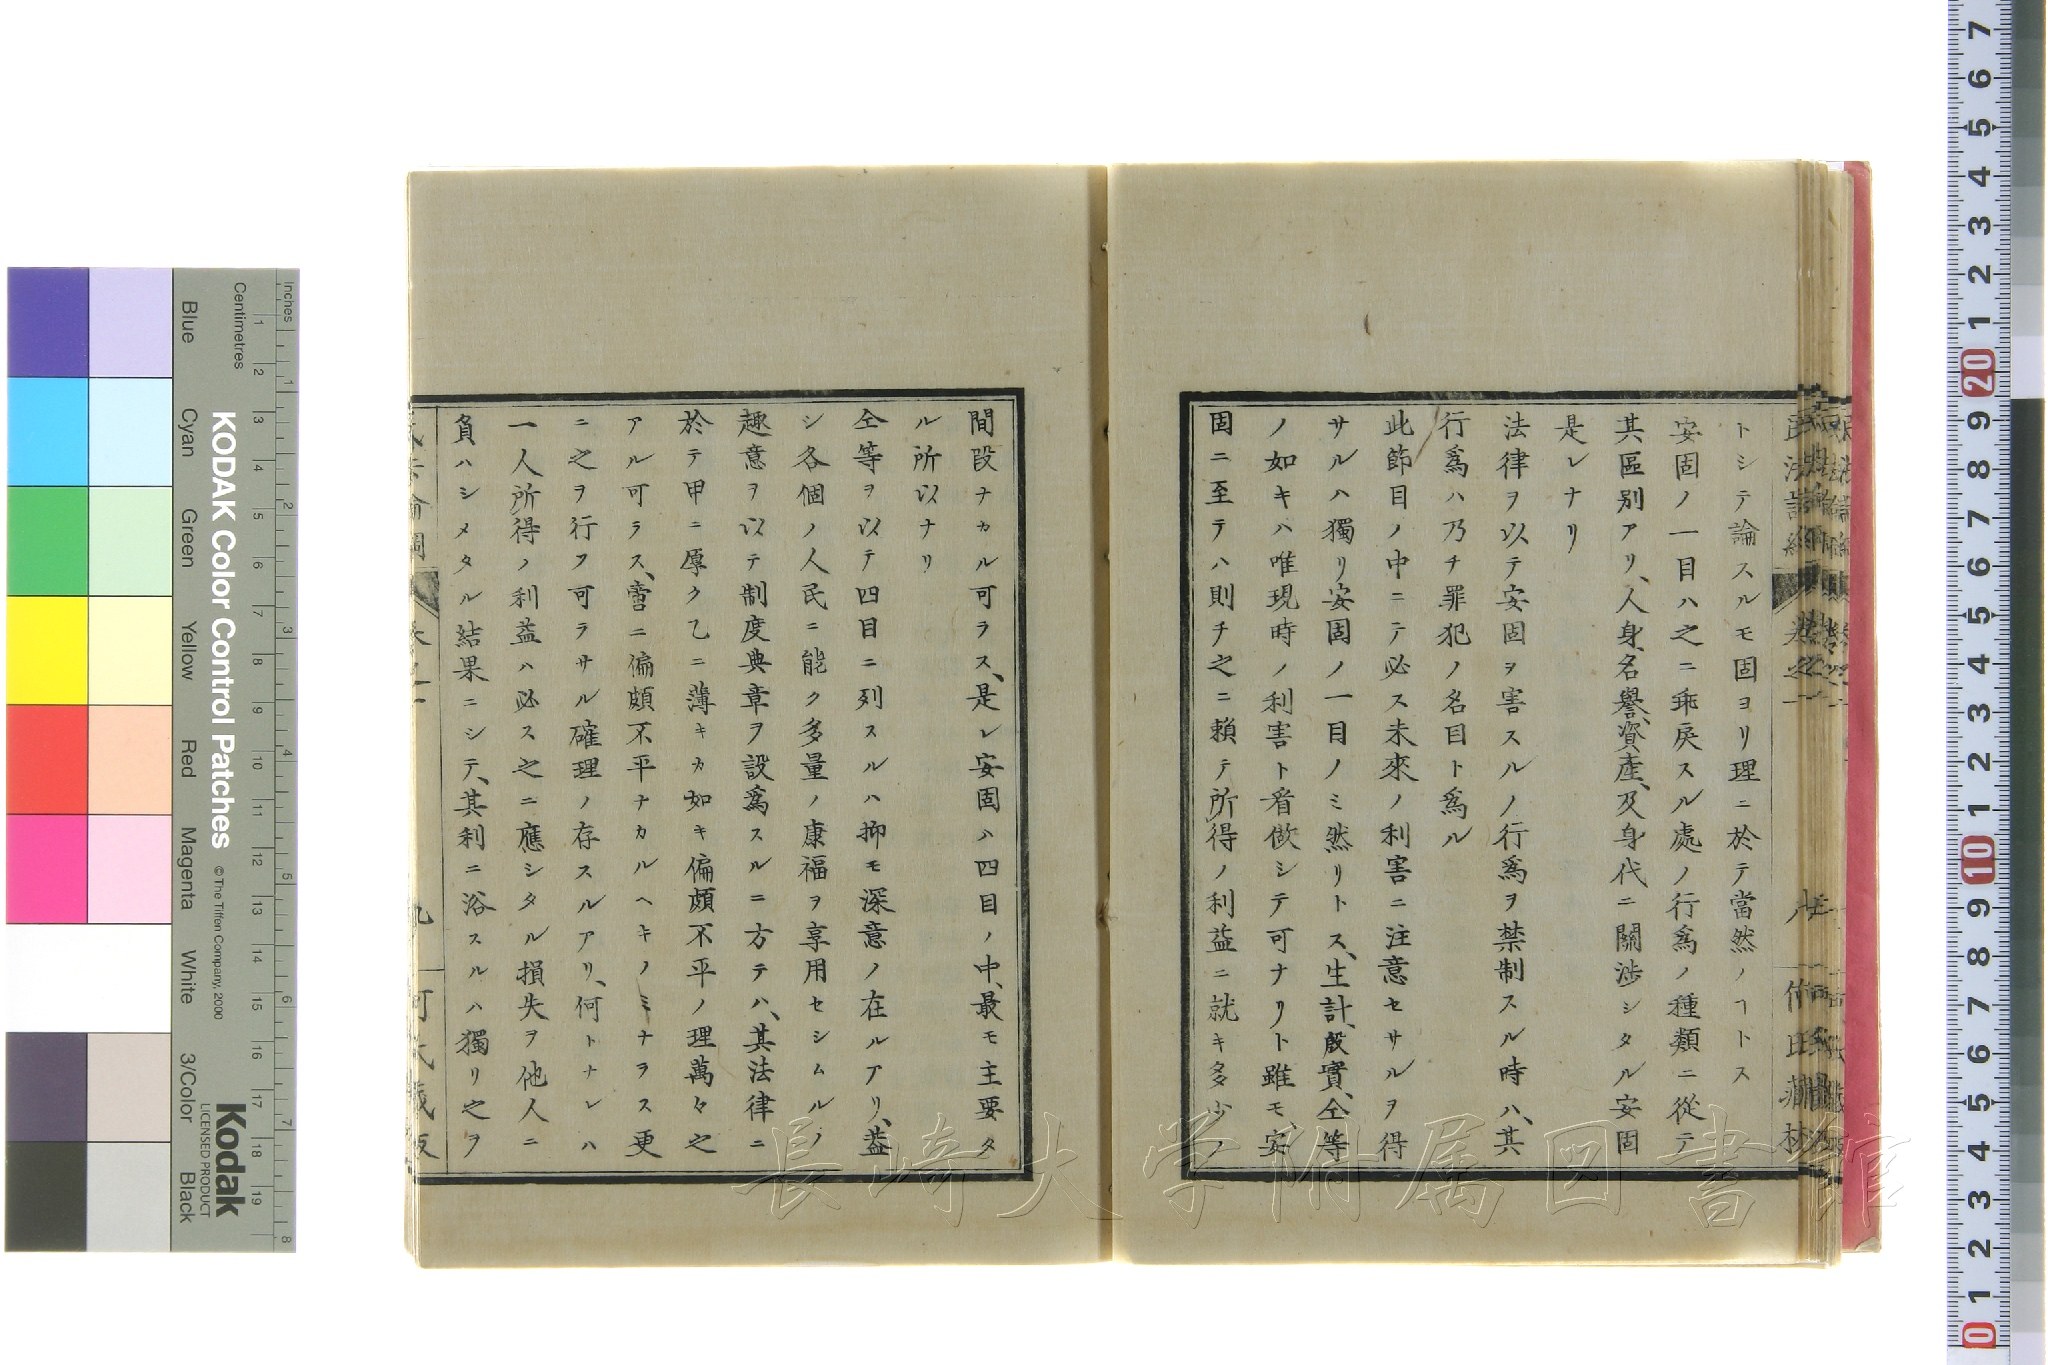 トシテ論スルモ固ヨリ理ニ於テ當然ノヿトス
安固ノ一目ハ之ニ乖戻スル處ノ行爲ノ種類ニ從テ
其區別アリ、人身、名譽、資產、及身代ニ關涉シタル安固
是レナリ
法律ヲ以テ安固ヲ害スルノ行爲ヲ禁制スル時ハ、其
行爲ハ乃チ罪犯ノ名目ト爲ル
此節目ノ中ニテ必ス未來ノ利害ニ注意セサルヲ得
サルハ獨リ安固ノ一目ノミ然リトス、生計、殷實、仝等
ノ如キハ唯現時ノ利害ト看做シテ可ナリト雖モ、安
固ニ至テハ則チ之ニ賴テ所得ノ利益ニ就キ多少ノ
間段ナカル可ラス、是レ安固ハ四目ノ中、最モ主要タ
ル所以ナリ
仝等ヲ以テ四目ニ列スルハ抑モ深意ノ在ルアリ、益
シ各個ノ人民ニ能ク多量ノ康福ヲ享用セシムルノ
趣意ヲ以テ制度典章ヲ設爲スルニ方テハ、其法律ニ
於テ甲ニ厚ク乙ニ薄キカ如キ偏頗不平ノ理萬々之
アル可ラス、啻ニ偏頗不平ナカルヘキノミナラス更
ニ之ヲ行フ可ラサル確理ノ存スルアリ、何トナレハ
一人所得ノ利益ハ必ス之ニ應シタル損失ヲ他人ニ
負ハシメタル結果ニシテ、其利ニ浴スルハ獨リ之ヲ
長崎大学附属図書館
KODAK Color Control Patches
© The Tiffen Company, 2000
Kodak
LICENSED PRODUCT
Inches
1 2 3 4 5 6 7 8
Centimetres
1 2 3 4 5 6 7 8 9 10 11 12 13 14 15 16 17 18 19
Blue
Cyan
Green
Yellow
Red
Magenta
White
3/Color
Black
7 6 5 4 3 2 1 20 9 8 7 6 5 4 3 2 1 10 9 8 7 6 5 4 3 2 1 0